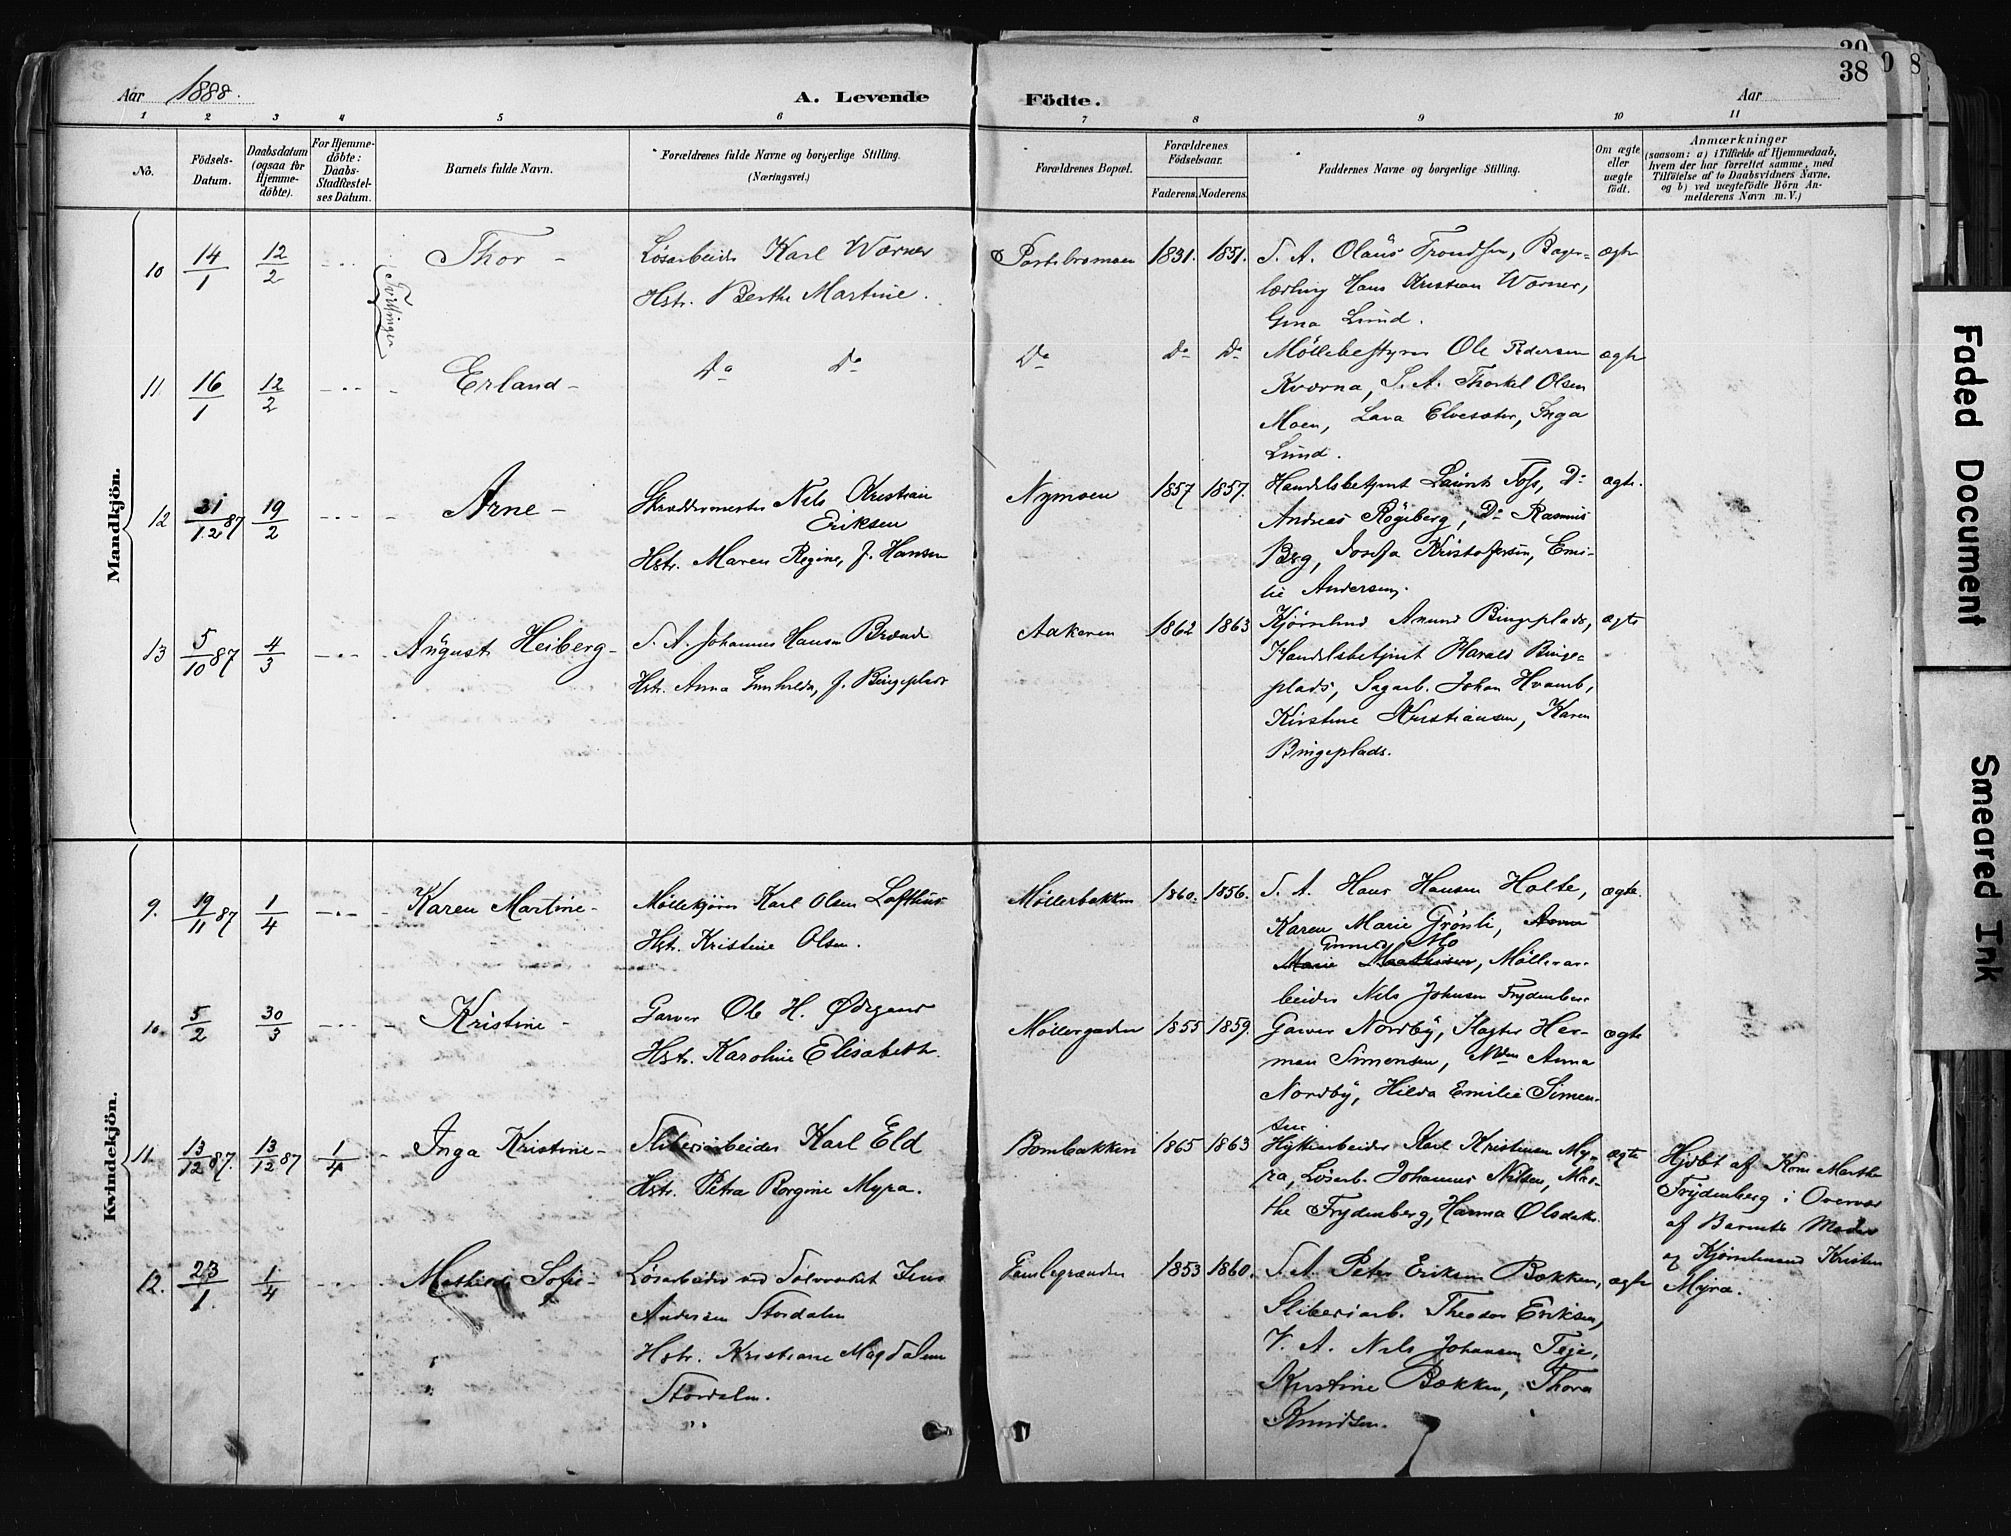 Aar 1888.
A. Levende Födte.
Aar
38
1 2 3 4 5 6 7 8 9 10 11
No.
Födsels-Datum.
Daabsdatum (ogsaa for Hjemme-döbte).
For Hjemme-döbte: Daabs-Stadfæstel-ses Datum.
Barnets fulde Navn.
Forældrenes fulde Navne og borgerlige Stilling.
(Næringsvei.)
Forældrenes Bopæl.
Forældrenes Födselsaar.
Faderens. Moderens.
Faddernes Navne og borgerlige Stilling.
Om ægte eller uægte födt.
Anmærkninger
(saasom: a) i Tilfælde af Hjemmedaab,
hvem der har forrettet samme, med
Tilföielse af to Daabsvidners Navne,
og b) ved uægtefödte Börn An-
melderens Navn m. V.)
Mandkjön.
10 14/1 12/2 Thor - Løsarbeider Karl Wærner
Hstr. Berthe Martine.
1831. 1851. S. A. Olaus Trondsen, Bager-
lærling Hans Kristian Wærner,
Gina Lund.
ægte
Tvillinger
11 16/1 12/2 Erland - Do Do
Do Do Do Møllebestyrer Ole Pedersen
Kværna, S. A. Thorkel Olsen
Moen, Lava Elvesæter, Inga
Lund.
ægte
12 31/12 87 19/2 Arne - Skræddermester Nils Kristian
Eriksen
Hstr. Maren Regine, f. Hansen
Nymoen 1857 1857. Handelsbetjent Laurits Foss, Do
Andreas Røgeberg, Do Rasmus
Berg, Josefa Kristofersen, Emi-
lie Andersen.
ægte.
13 5/10 87 4/3 August Heiberg - S. A. Johannes Hansen Brænd
Hstr. Anna Gunhilda, f. Bingeplads
Aakeren 1862 1863 Kjørselmd Amund Bingeplads,
Handelsbetjent Harald Binge-
plads, Sagarb. Johan Hvamb,
Kirstine Kristiansen, Karen
Bingeplads.
ægte
Kvindekjön.
9. 19/11 87 1/4 Karen Martine - Møllekjører Karl Olsen Lofthus
Hstr. Kristine Olsen.
Møllerbakken 1860. 1856. S. A. Hans Hansen Holte,
Karen Marie Grønli, Anna
Mo
Marie Mathisen, Møllerar-
beider Nils Johnsen Frydenberg
ægte.
10. 5/2 30/3 Kristine - Garver Ole H. Ødegaard
Hstr. Karoline Elisabeth.
Møllergaden 1855 1859. Garver Nordby, Her-
man Simensen, Mdm Anna
Nordby, Hilda Emilie Simen-
sen
ægte
11. 13/12 87. 13/12 87 1/4 Inga Kristine - Sliberiarbeider Karl Eld
Hstr. Petra Borgine Myra.
Bombakken 1865 1863 Hytteiarbeider Karl Kristensen My-
ra, Løsarb. Johannes Nilsen, Mar-
the Frydenberg, Hanna Olsdatter
ægte
Hjdbt af Kone Marthe
Frydenberg i Overvær
af Barnets Moder
og Kjørselmand Kristen
Myra.
12. 23/1. 1/4 Mathea Sofie - Løsarbeider ved Sølvverket Jens
Andersen Stordalen
Hstr. Kristiane Magdalene
Stordalen.
Gamlegrænden 1853 1860. S. A. Peter Eriksen Bakken,
Sliberiarb. Theodor Eriksen,
V. A. Nils Johansen Teje,
Kristine Bakken, Thora
Knudsen.
ægte
Faded Document
Smeared Ink